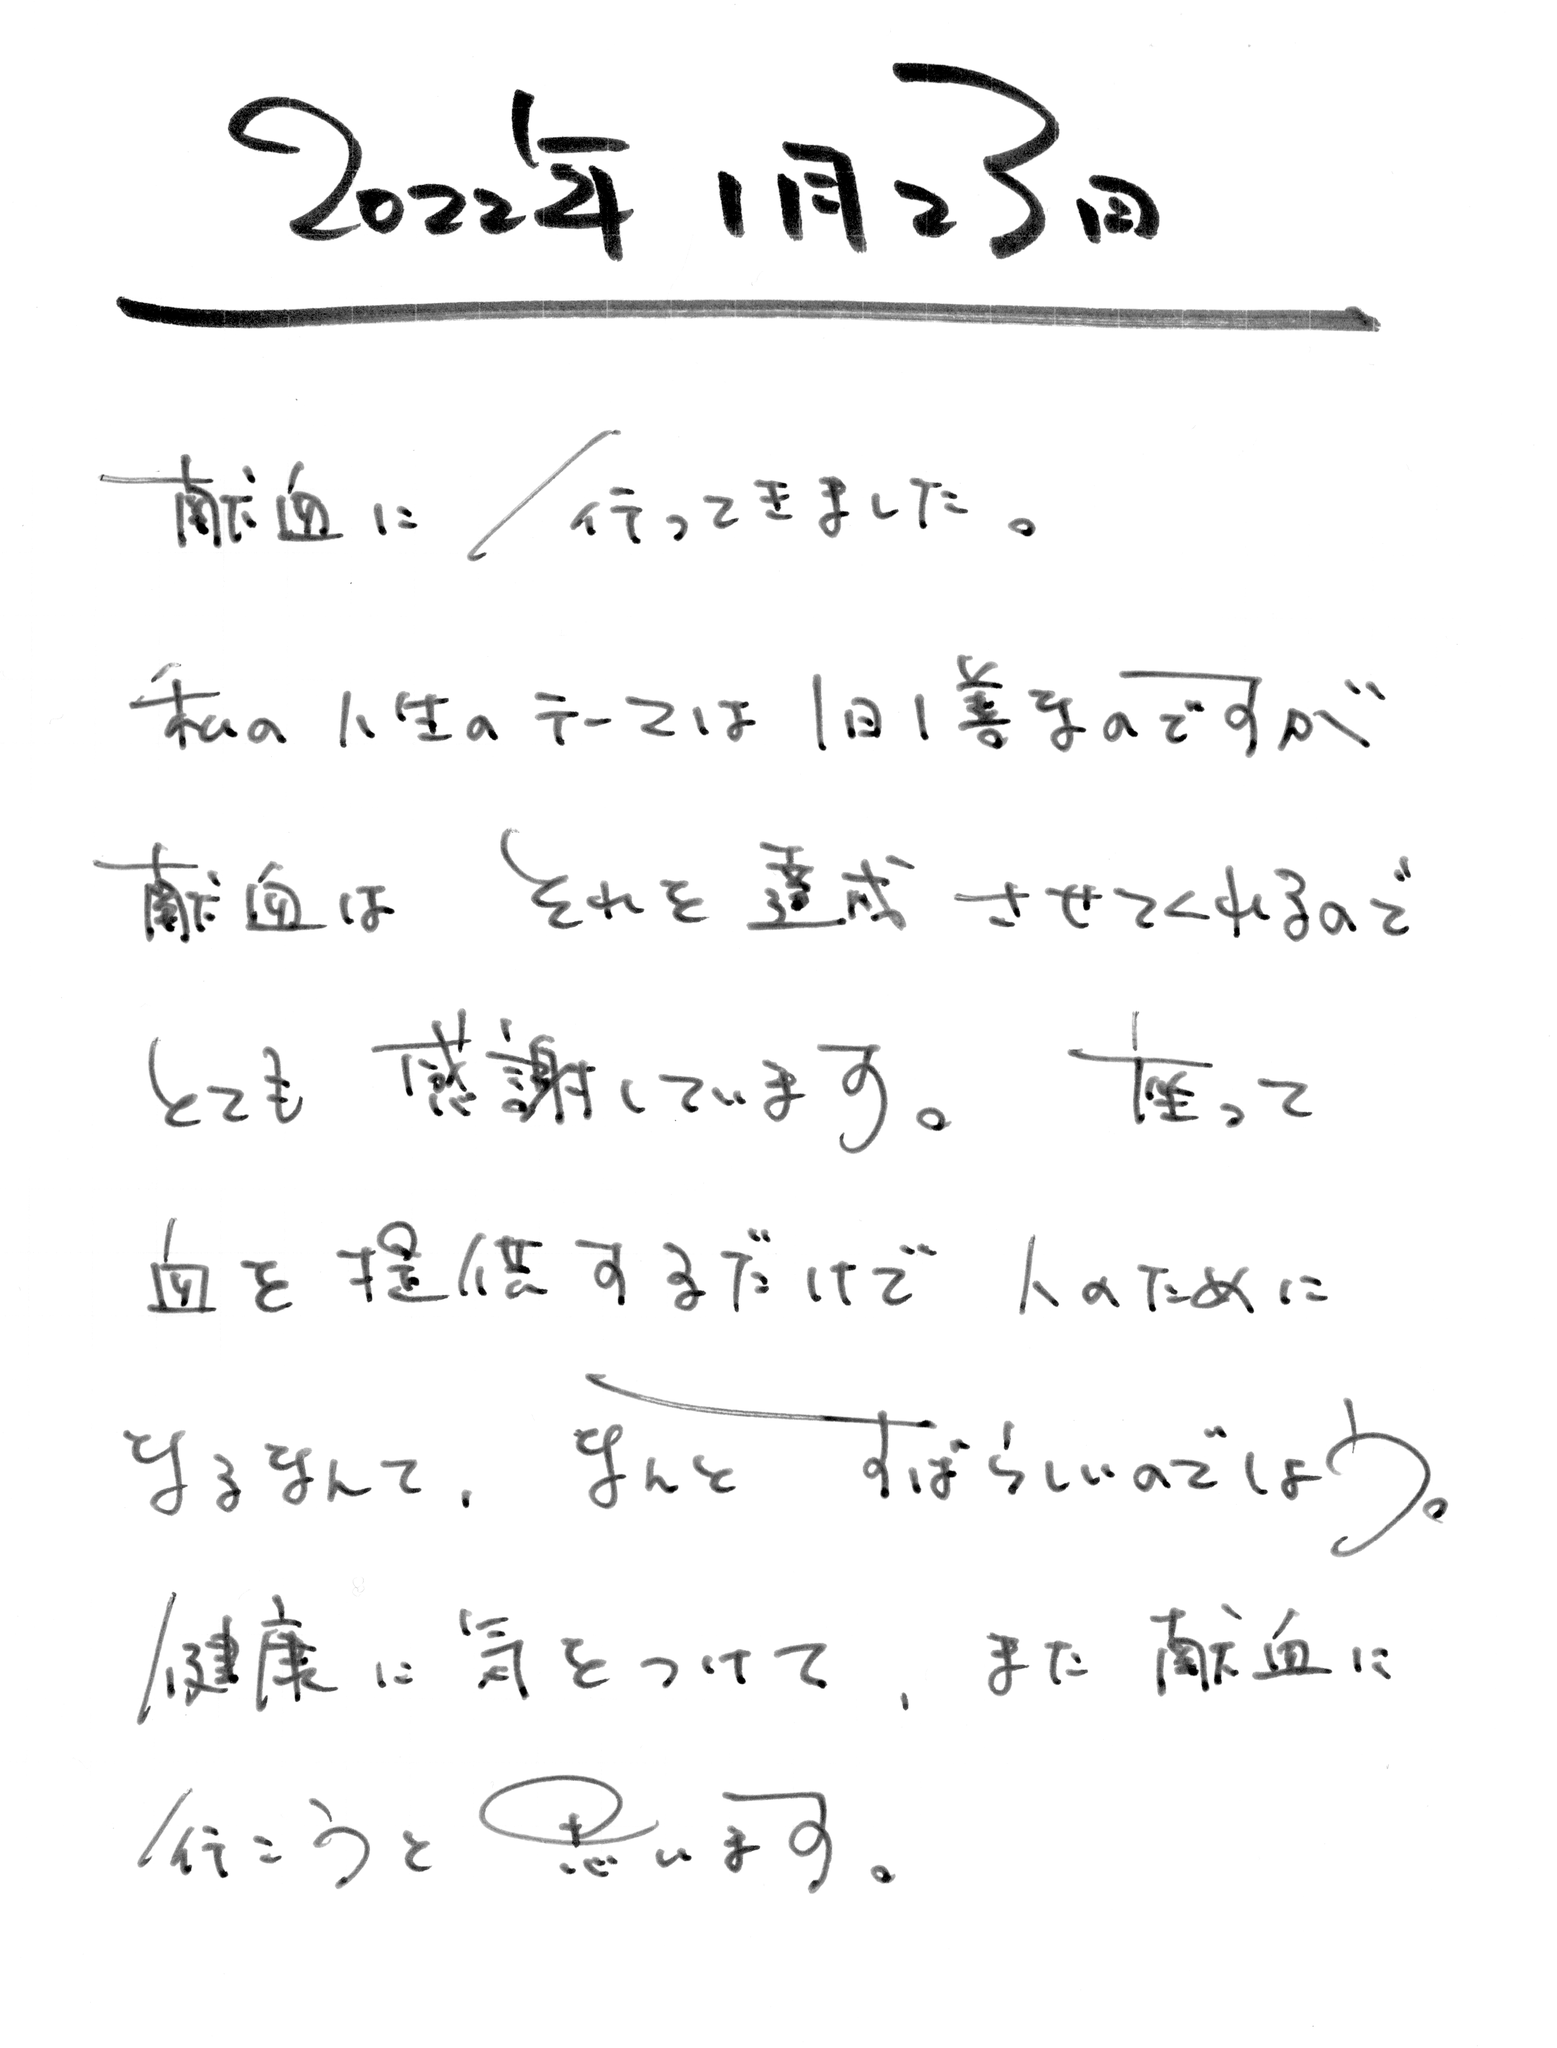 2022年1月23日
献血に行ってきました。
私の人生のテーマは1日1善なのですが
献血はそれを達成させてくれるので
とても感謝しています。座って
血を提供するだけで人のために
なるなんて、なんとすばらしいのでしょう。
健康に気をつけて、また献血に
行こうと思います。